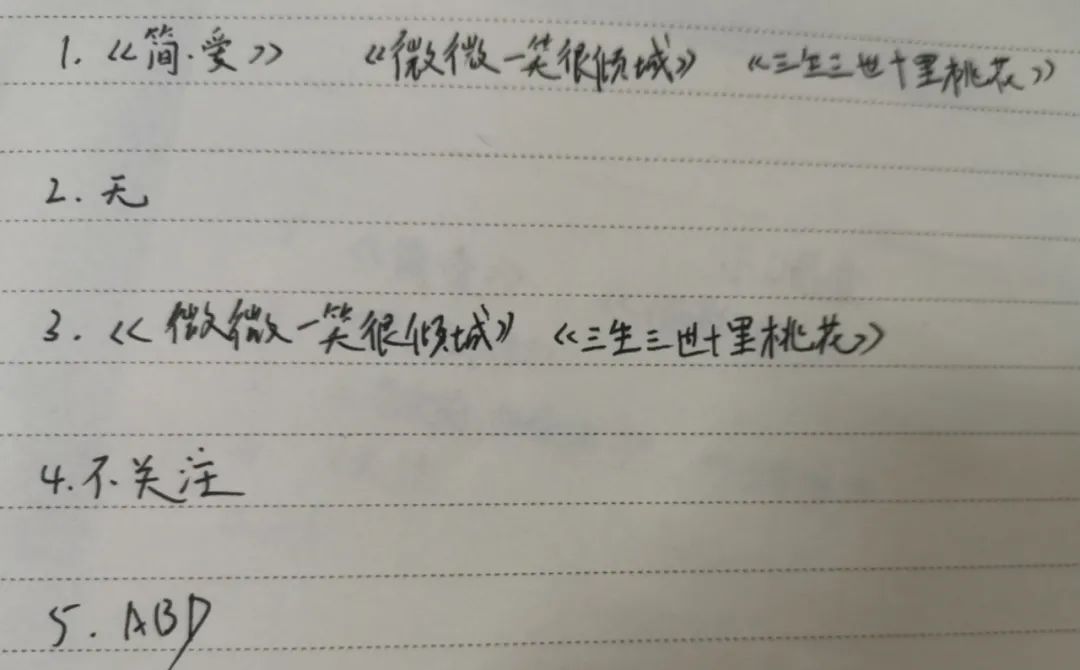 1.《简·爱》 《微微一笑很倾城》 《三生三世十里桃花》
2.无
3.《微微一笑很倾城》《三生三世十里桃花》
4.不关注
5.ABD